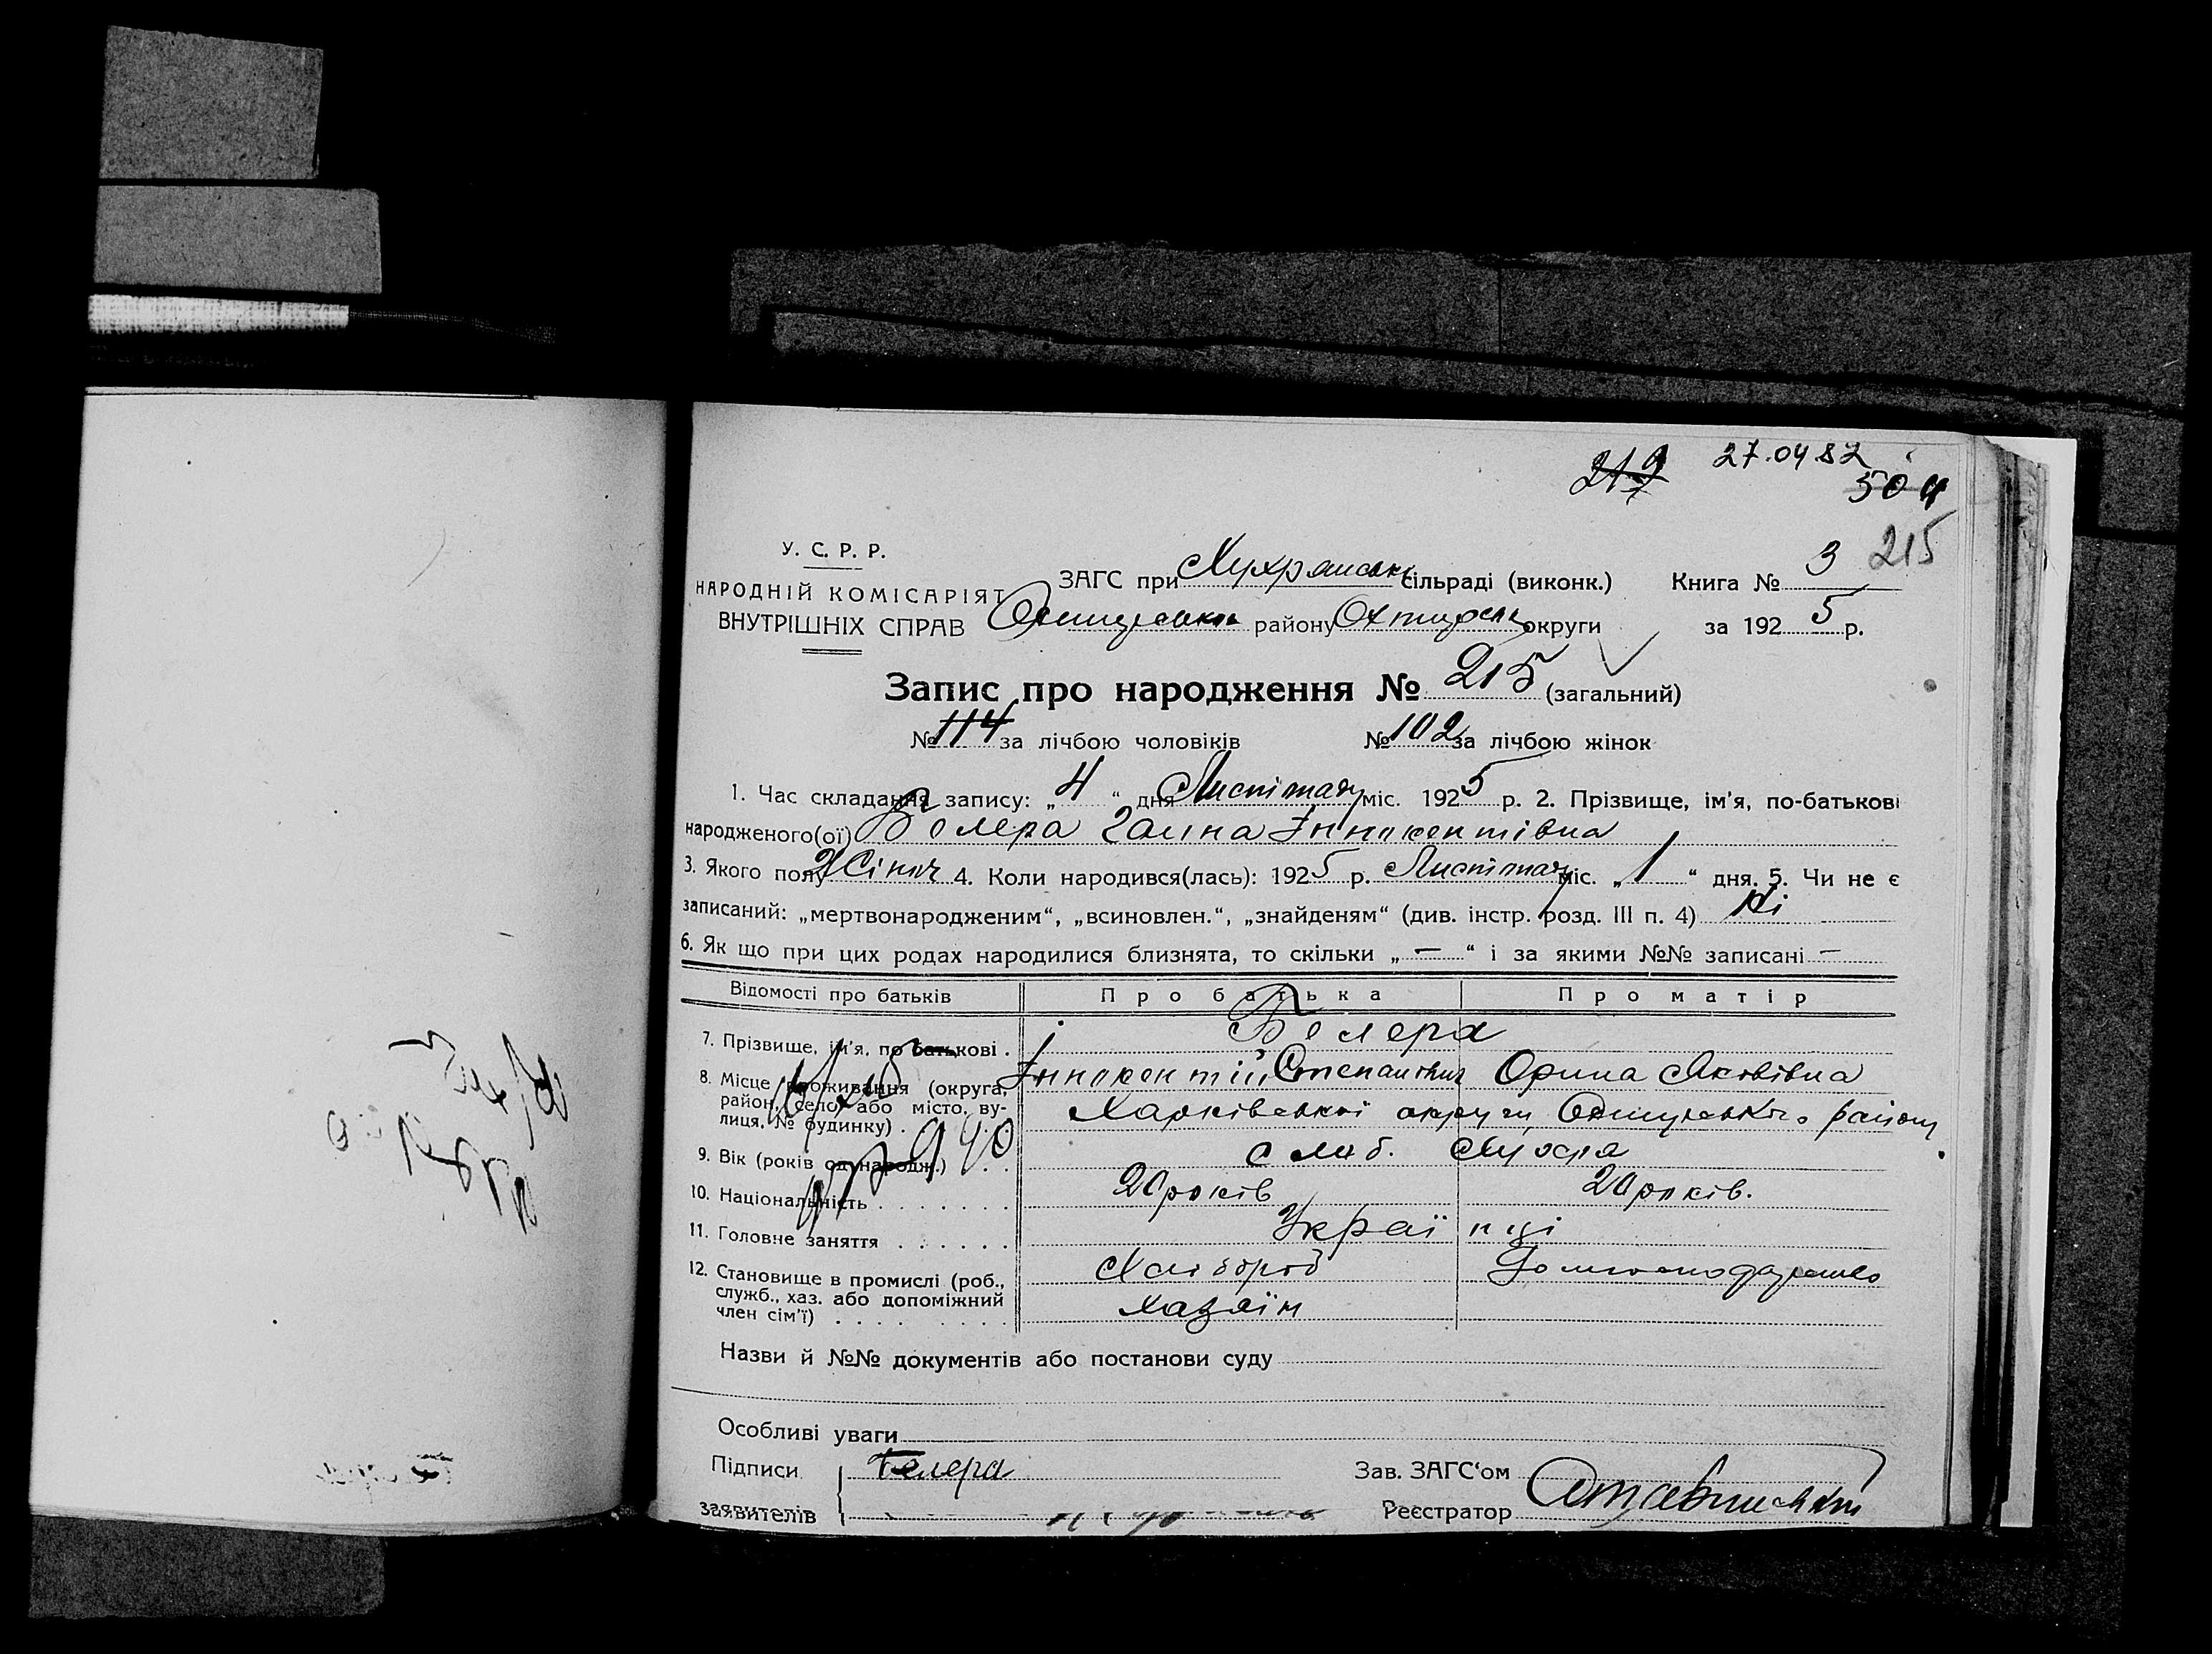 219 27.04.82
504
215
У. С. Р. Р.
НАРОДНІЙ КОМІСАРІЯТ
ВНУТРІШНІХ СПРАВ
ЗАГС при Хухрянськ. сільраді (виконк.) Книга № 3
району Охтирськ округи за 1925 р.
Запис про народження № 215 (загальний)
№ 114 за лічбою чоловіків № 102 за лічбою жінок
1. Час складання запису: „4“ дня Листопаду міс. 1925 р. 2. Прізвище, ім'я, по-батькові
народженого(ої) Белера Галина Інокентівна
3. Якого полу Жіноч 4. Коли народився(лась): 1925 р. Листопаду міс. „1“ дня. 5. Чи не є
записаний: „мертвонародженим“, „всиновлен.“, „знайденям“ (див. інстр. розд. III п. 4) Ні
6. Як що при цих родах народилися близнята, то скільки „—“ і за якими №№ записані —
Відомості про батьків Про батька Про матір
7. Прізвище, ім'я, по батькові . Белера
Інокентій Степанович Орина Яковівна
8. Місце проживання (округа, район, село або місто, вулиця, № будинку) . Харківської округи, Охтирського району
слоб. Хухря
9. Вік (років од народж.) . . 20 років 20 років.
10. Національність . . . . . . . Українці
11. Головне заняття . . . . . . Хлібороб Домогосподарство
12. Становище в промислі (роб., служб., хаз. або допоміжний член сім'ї) . . . . Хазяїн
Назви й №№ документів або постанови суду
Особливі уваги
Підписи Белера Зав. ЗАГС'ом
заявителів Реєстратор